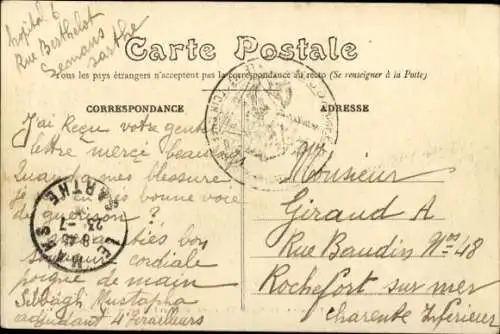 hôpital 6
Rue Berthelot
Le mans
sarthe
Carte Postale
Tous les pays étrangers n'acceptent pas la correspondance au recto (Se renseigner à la Poste)
CORRESPONDANCE
ADRESSE
J'ai Reçu votre gente
lettre merçé beaucoup
quand a mes blessure
en bonne voie
de guérison ?
amitiés bon
souvenir cordiale
poigne de main
Selbagh Mustapha
adjudant 4e tirailleurs
Monsieur
Giraud A
Rue Baudin No 48
Rochefort sur mer
Charente Inférieure
LE MANS
SARTHE
23 -7